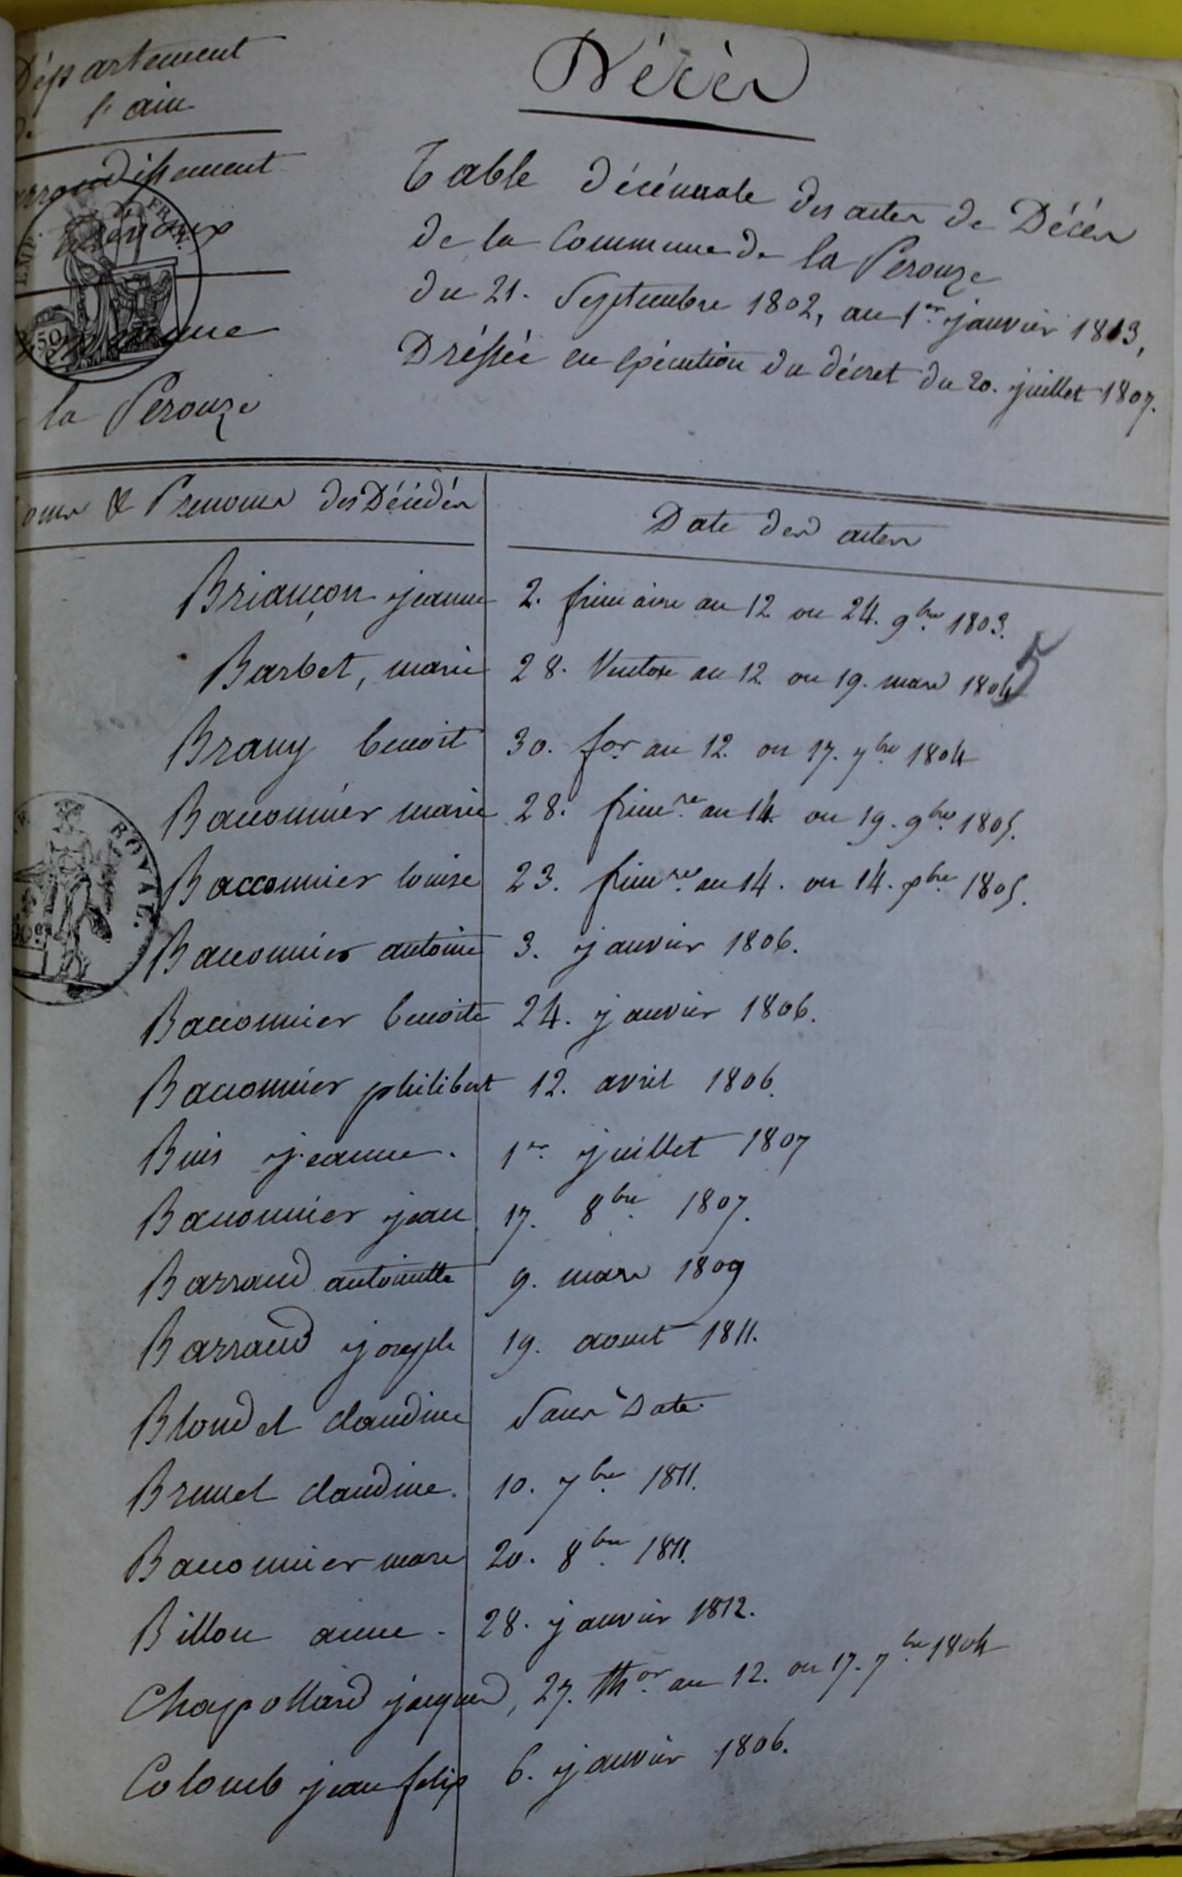 Département
de l'ain
arrondissement
de Trévoux
Commune
la Perouze
Décès
Table décénnale des actes de Décès
de la Commune de la Perouze
du 21. Septembre 1802, au 1er janvier 1813,
Dréssée en éxécution du décret du 20. juillet 1807.
Noms & Prenoms des Décédés
Date des actes
Briançon jeanne 2. frimaire an 12 ou 24. 9bre 1803.
Barbet, marie 28. Ventose an 12 ou 19. mars 1804
5
Brany benoit 30. for an 12. ou 17. 7bre 1804
Baconnier marie 28. frimre an 14. ou 19. 9bre 1805.
Bacconnier louise 23. frimre an 14. ou 14. xbre 1805.
Baconnier antoine 3. janvier 1806.
Baconnier benoite 24. janvier 1806.
Baconnier philibert 12. avril 1806.
Buis jeanne. 1er juillet 1807
Baconnier jean 17. 8bre 1807.
Barraud antoinette 9. mars 1809
Barraud joseph 19. aoust 1811.
Blondel claudine Sans Date.
Brunel claudine. 10. 7bre 1811.
Baconnier marie 20. 8bre 1811.
Billon anne. 28. janvier 1812.
Chapollard jacques, 27. thor an 12. ou 17. 7bre 1804
Colomb jean felix 6. janvier 1806.
EMP. FRAN.
50
ROYAL.